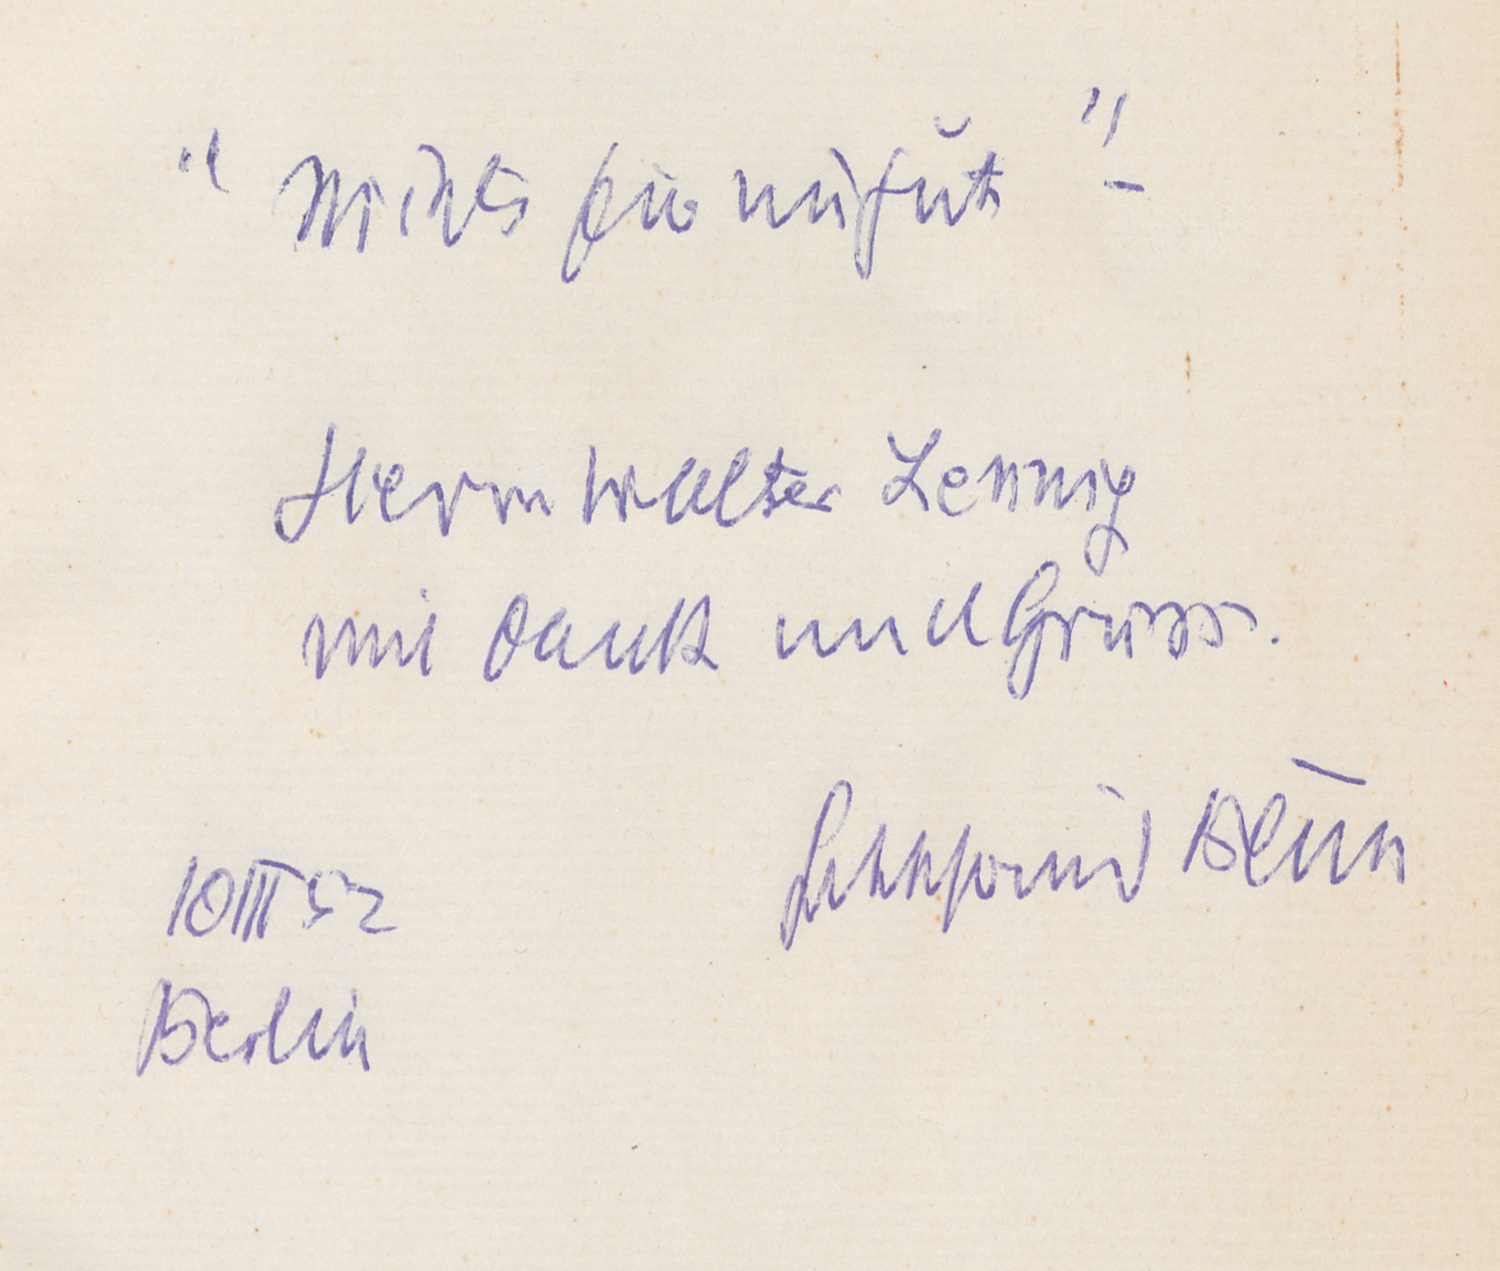 "Nichts für ungut" –
Herrn Walter Lennig
mit Dank und Gruss.
Gottfried Benn
10 III 52
Berlin